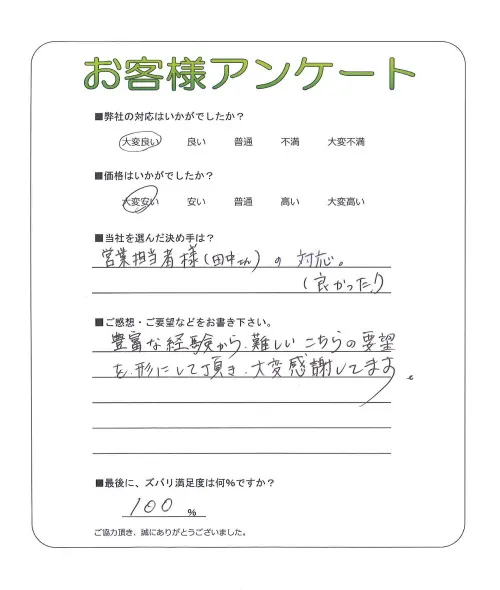 お客様アンケート
■弊社の対応はいかがでしたか？
大変良い 良い 普通 不満 大変不満
■価格はいかがでしたか？
大変安い 安い 普通 高い 大変高い
■当社を選んだ決め手は？
営業担当者様（田中さん）の 対応。
（良かった!）
■ご感想・ご要望などをお書き下さい。
豊富な経験から、難しいこちらの要望
を、形にして頂き、大変感謝してます。
■最後に、ズバリ満足度は何％ですか？
100 ％
ご協力頂き、誠にありがとうございました。